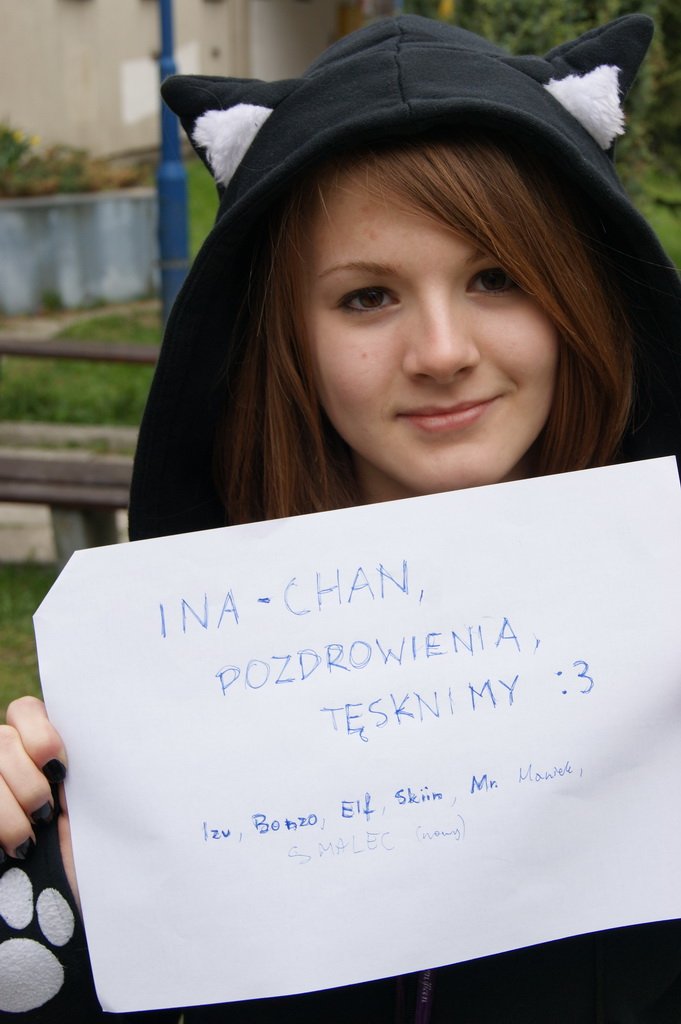 INA-CHAN,
POZDROWIENIA,
TĘSKNIMY :3
Izu, Bonzo, Elf, Skiin, Mr. Maniek,
SMALEC (nowy)